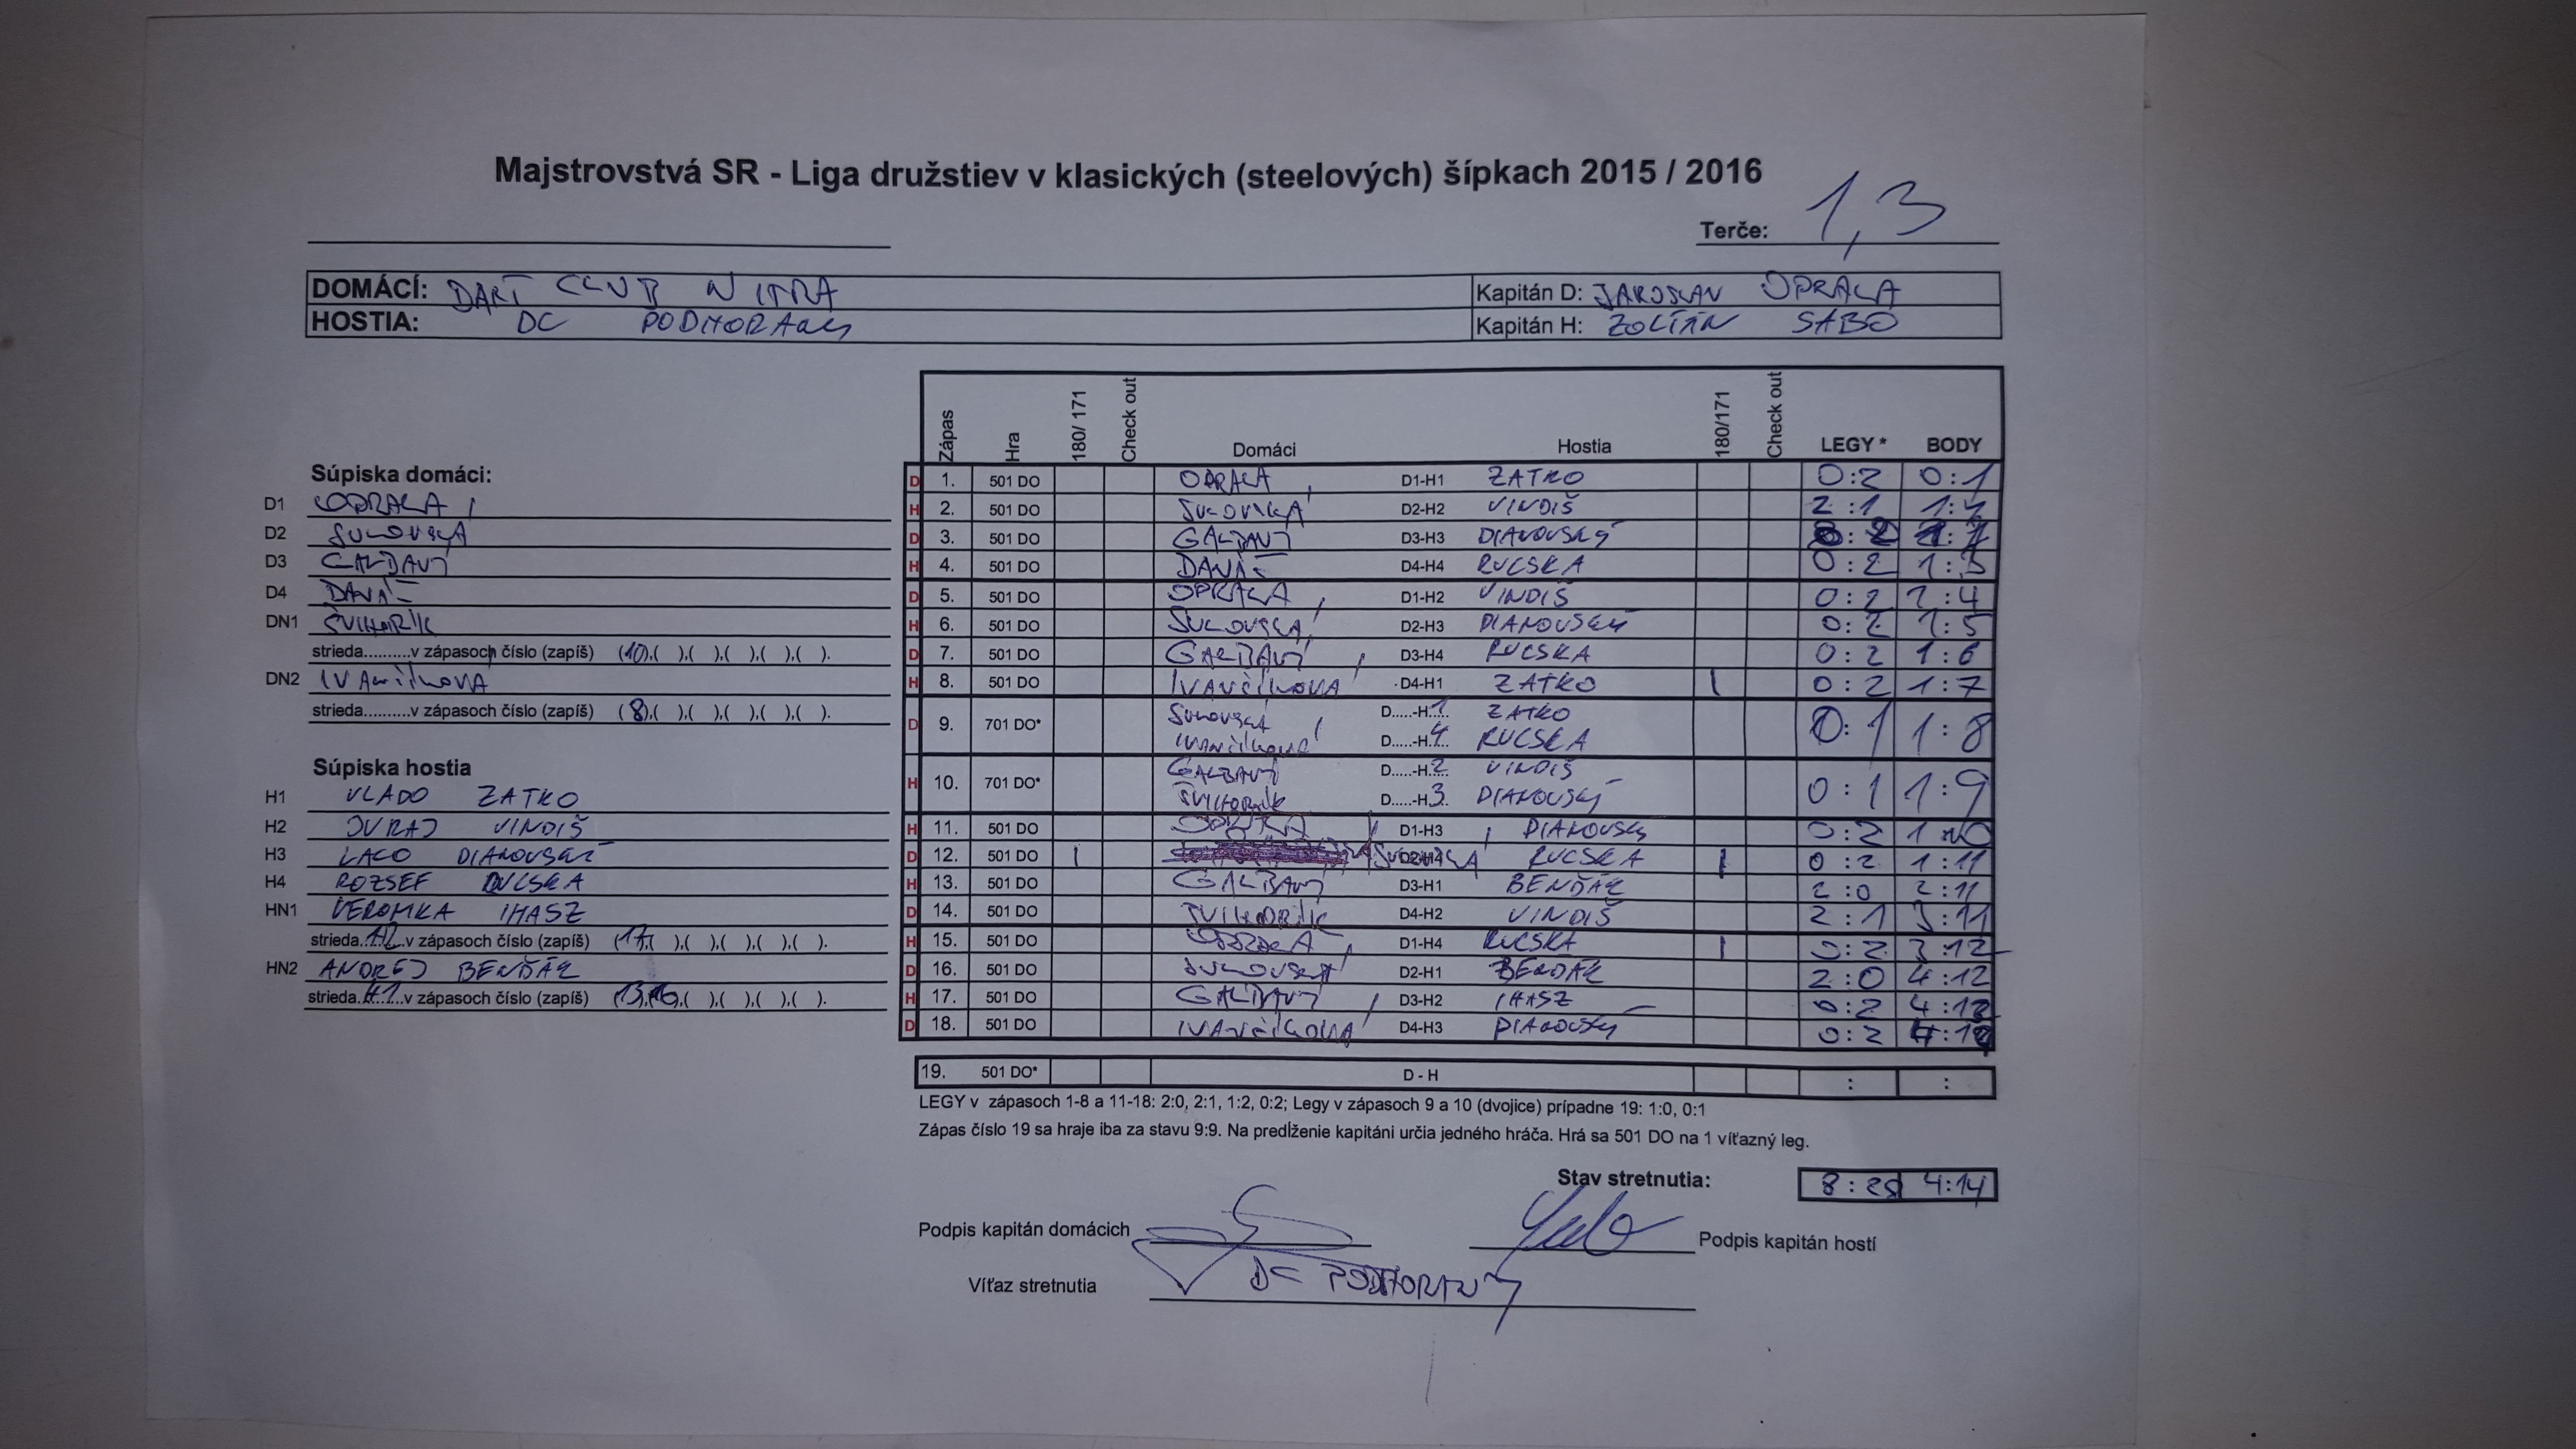 Majstrovstvá SR - Liga družstiev v klasických (steelových) šípkach 2015 / 2016
Terče: 1,3
DOMÁCÍ: DART CLUB NITRA Kapitán D: JAROSLAV OPRALA
HOSTIA: DC PODHORANY Kapitán H: ZOLTÁN SABO
Zápas Hra 180/ 171 Check out Domáci Hostia 180/171 Check out LEGY * BODY
Súpiska domáci:
D1 OPRALA
D2 SUKOVSKÁ
D3 GALBAVÝ
D4 DANÁŠ
DN1 ŠVIHORÍK
strieda..........v zápasoch číslo (zapíš) (10),( ),( ),( ),( ),( ).
DN2 IVANČÍKOVÁ
strieda..........v zápasoch číslo (zapíš) (8),( ),( ),( ),( ),( ).
Súpiska hostia
H1 VLADO ZATKO
H2 JURAJ VINDIŠ
H3 LACO DIANOVSKÝ
H4 ROZSEF RUCSKA
HN1 VERONIKA IHASZ
strieda..H2..v zápasoch číslo (zapíš) (17),( ),( ),( ),( ),( ).
HN2 ANDREJ BENĎÁK
strieda..H1..v zápasoch číslo (zapíš) (13),(16),( ),( ),( ),( ).
D 1. 501 DO OPRALA D1-H1 ZATKO 0:2 0:1
H 2. 501 DO SUKOVSKÁ D2-H2 VINDIŠ 2:1 1:1
D 3. 501 DO GALBAVÝ D3-H3 DIANOVSKÝ
H 4. 501 DO DANÁŠ D4-H4 RUCSKA 0:2 1:3
D 5. 501 DO OPRALA D1-H2 VINDIŠ 0:2 1:4
H 6. 501 DO SUKOVSKÁ D2-H3 DIANOVSKÝ 0:2 1:5
D 7. 501 DO GALBAVÝ D3-H4 RUCSKA 0:2 1:6
H 8. 501 DO IVANČÍKOVÁ D4-H1 ZATKO | 0:2 1:7
D 9. 701 DO* SUKOVSKÁ D.....-H.1 ZATKO 0:1 1:8
IVANČÍKOVÁ D.....-H.4. RUCSKA
H 10. 701 DO* GALBAVÝ D.....-H.2. VINDIŠ 0:1 1:9
ŠVIHORÍK D.....-H.3. DIANOVSKÝ
H 11. 501 DO OPRALA D1-H3 DIANOVSKÝ 0:2 1:10
D 12. 501 DO | SUKOVSKÁ D2-H4 RUCSKA | 0:2 1:11
H 13. 501 DO GALBAVÝ D3-H1 BENĎÁK 2:0 2:11
D 14. 501 DO ŠVIHORÍK D4-H2 VINDIŠ 2:1 3:11
H 15. 501 DO OPRALA D1-H4 RUCSKA | 0:2 3:12
D 16. 501 DO SUKOVSKÁ D2-H1 BENĎÁK 2:0 4:12
H 17. 501 DO GALBAVÝ D3-H2 IHASZ 0:2 4:13
D 18. 501 DO IVANČÍKOVÁ D4-H3 DIANOVSKÝ 0:2
19. 501 DO* D - H : :
LEGY v zápasoch 1-8 a 11-18: 2:0, 2:1, 1:2, 0:2; Legy v zápasoch 9 a 10 (dvojice) prípadne 19: 1:0, 0:1
Zápas číslo 19 sa hraje iba za stavu 9:9. Na predĺženie kapitáni určia jedného hráča. Hrá sa 501 DO na 1 víťazný leg.
Stav stretnutia: 8:28 4:14
Podpis kapitán domácich Podpis kapitán hostí
Víťaz stretnutia DC PODHORANY